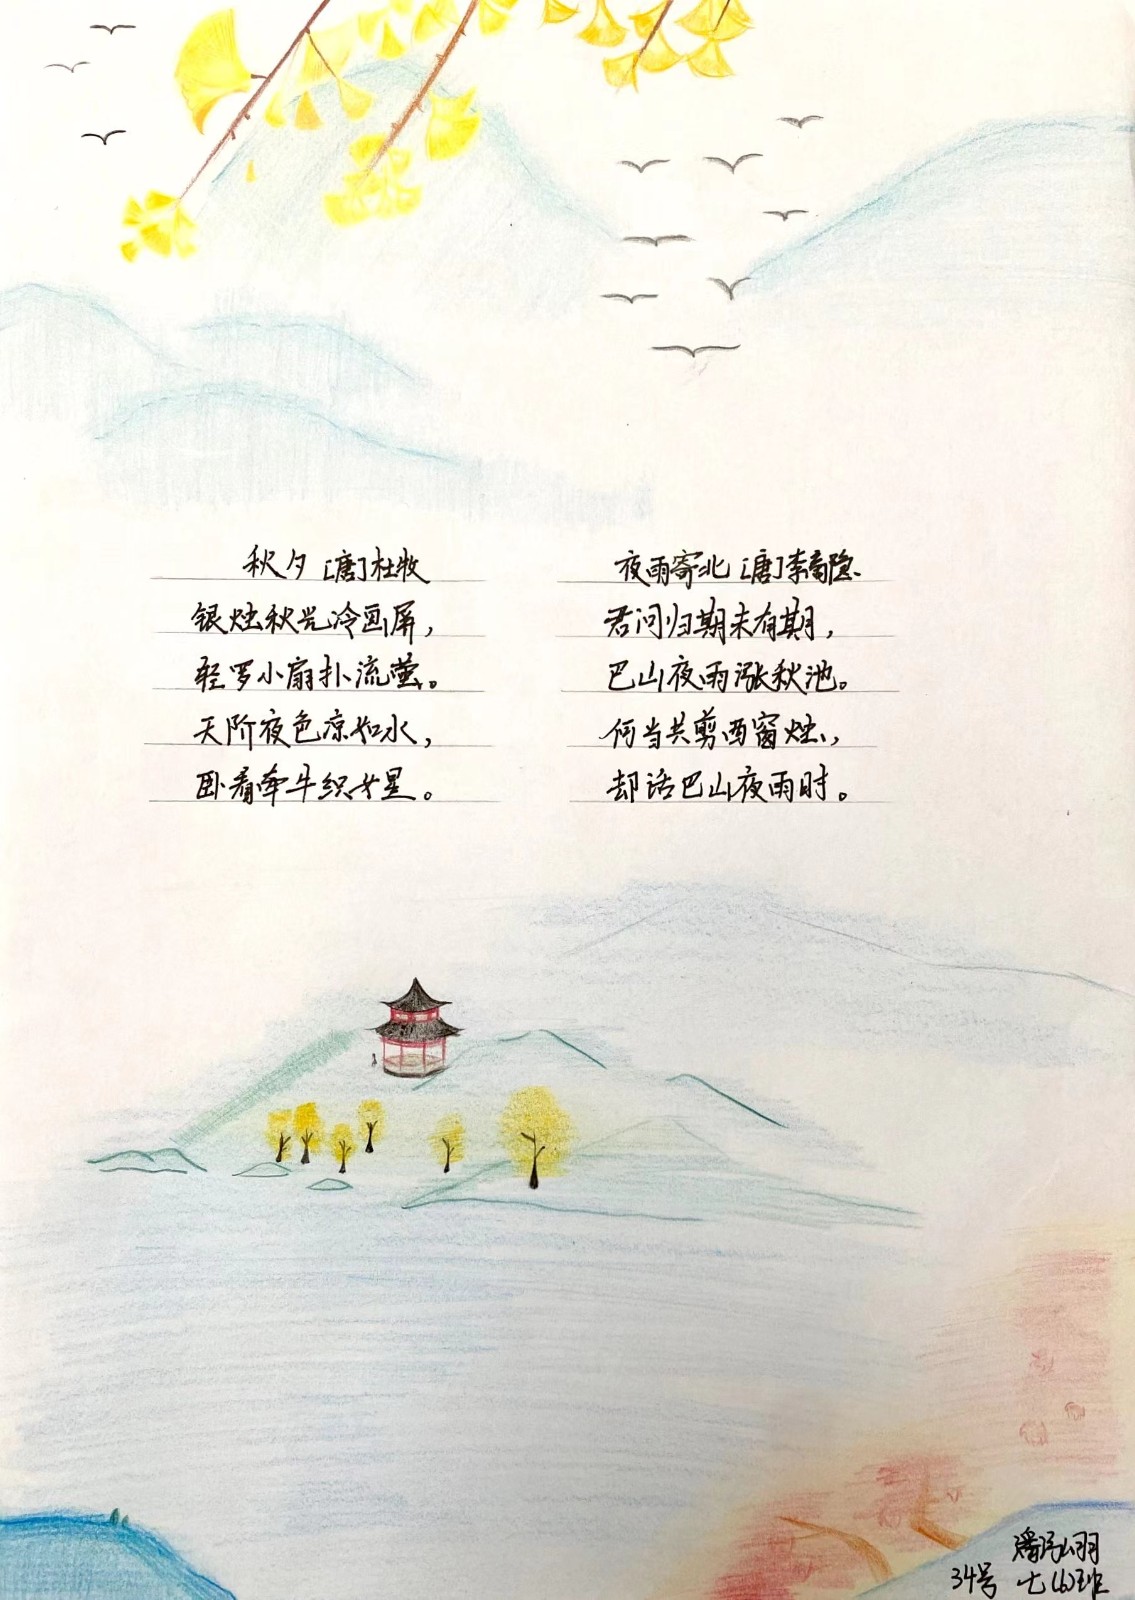 秋夕 [唐]杜牧
银烛秋光冷画屏，
轻罗小扇扑流萤。
天阶夜色凉如水，
卧看牵牛织女星。
夜雨寄北 [唐]李商隐
君问归期未有期，
巴山夜雨涨秋池。
何当共剪西窗烛，
却话巴山夜雨时。
潘泓羽
34号 七(6)班